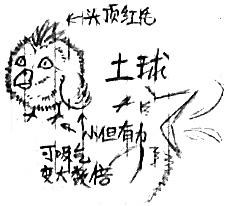 头顶红毛
土球
小但有力
可吸气
变大数倍